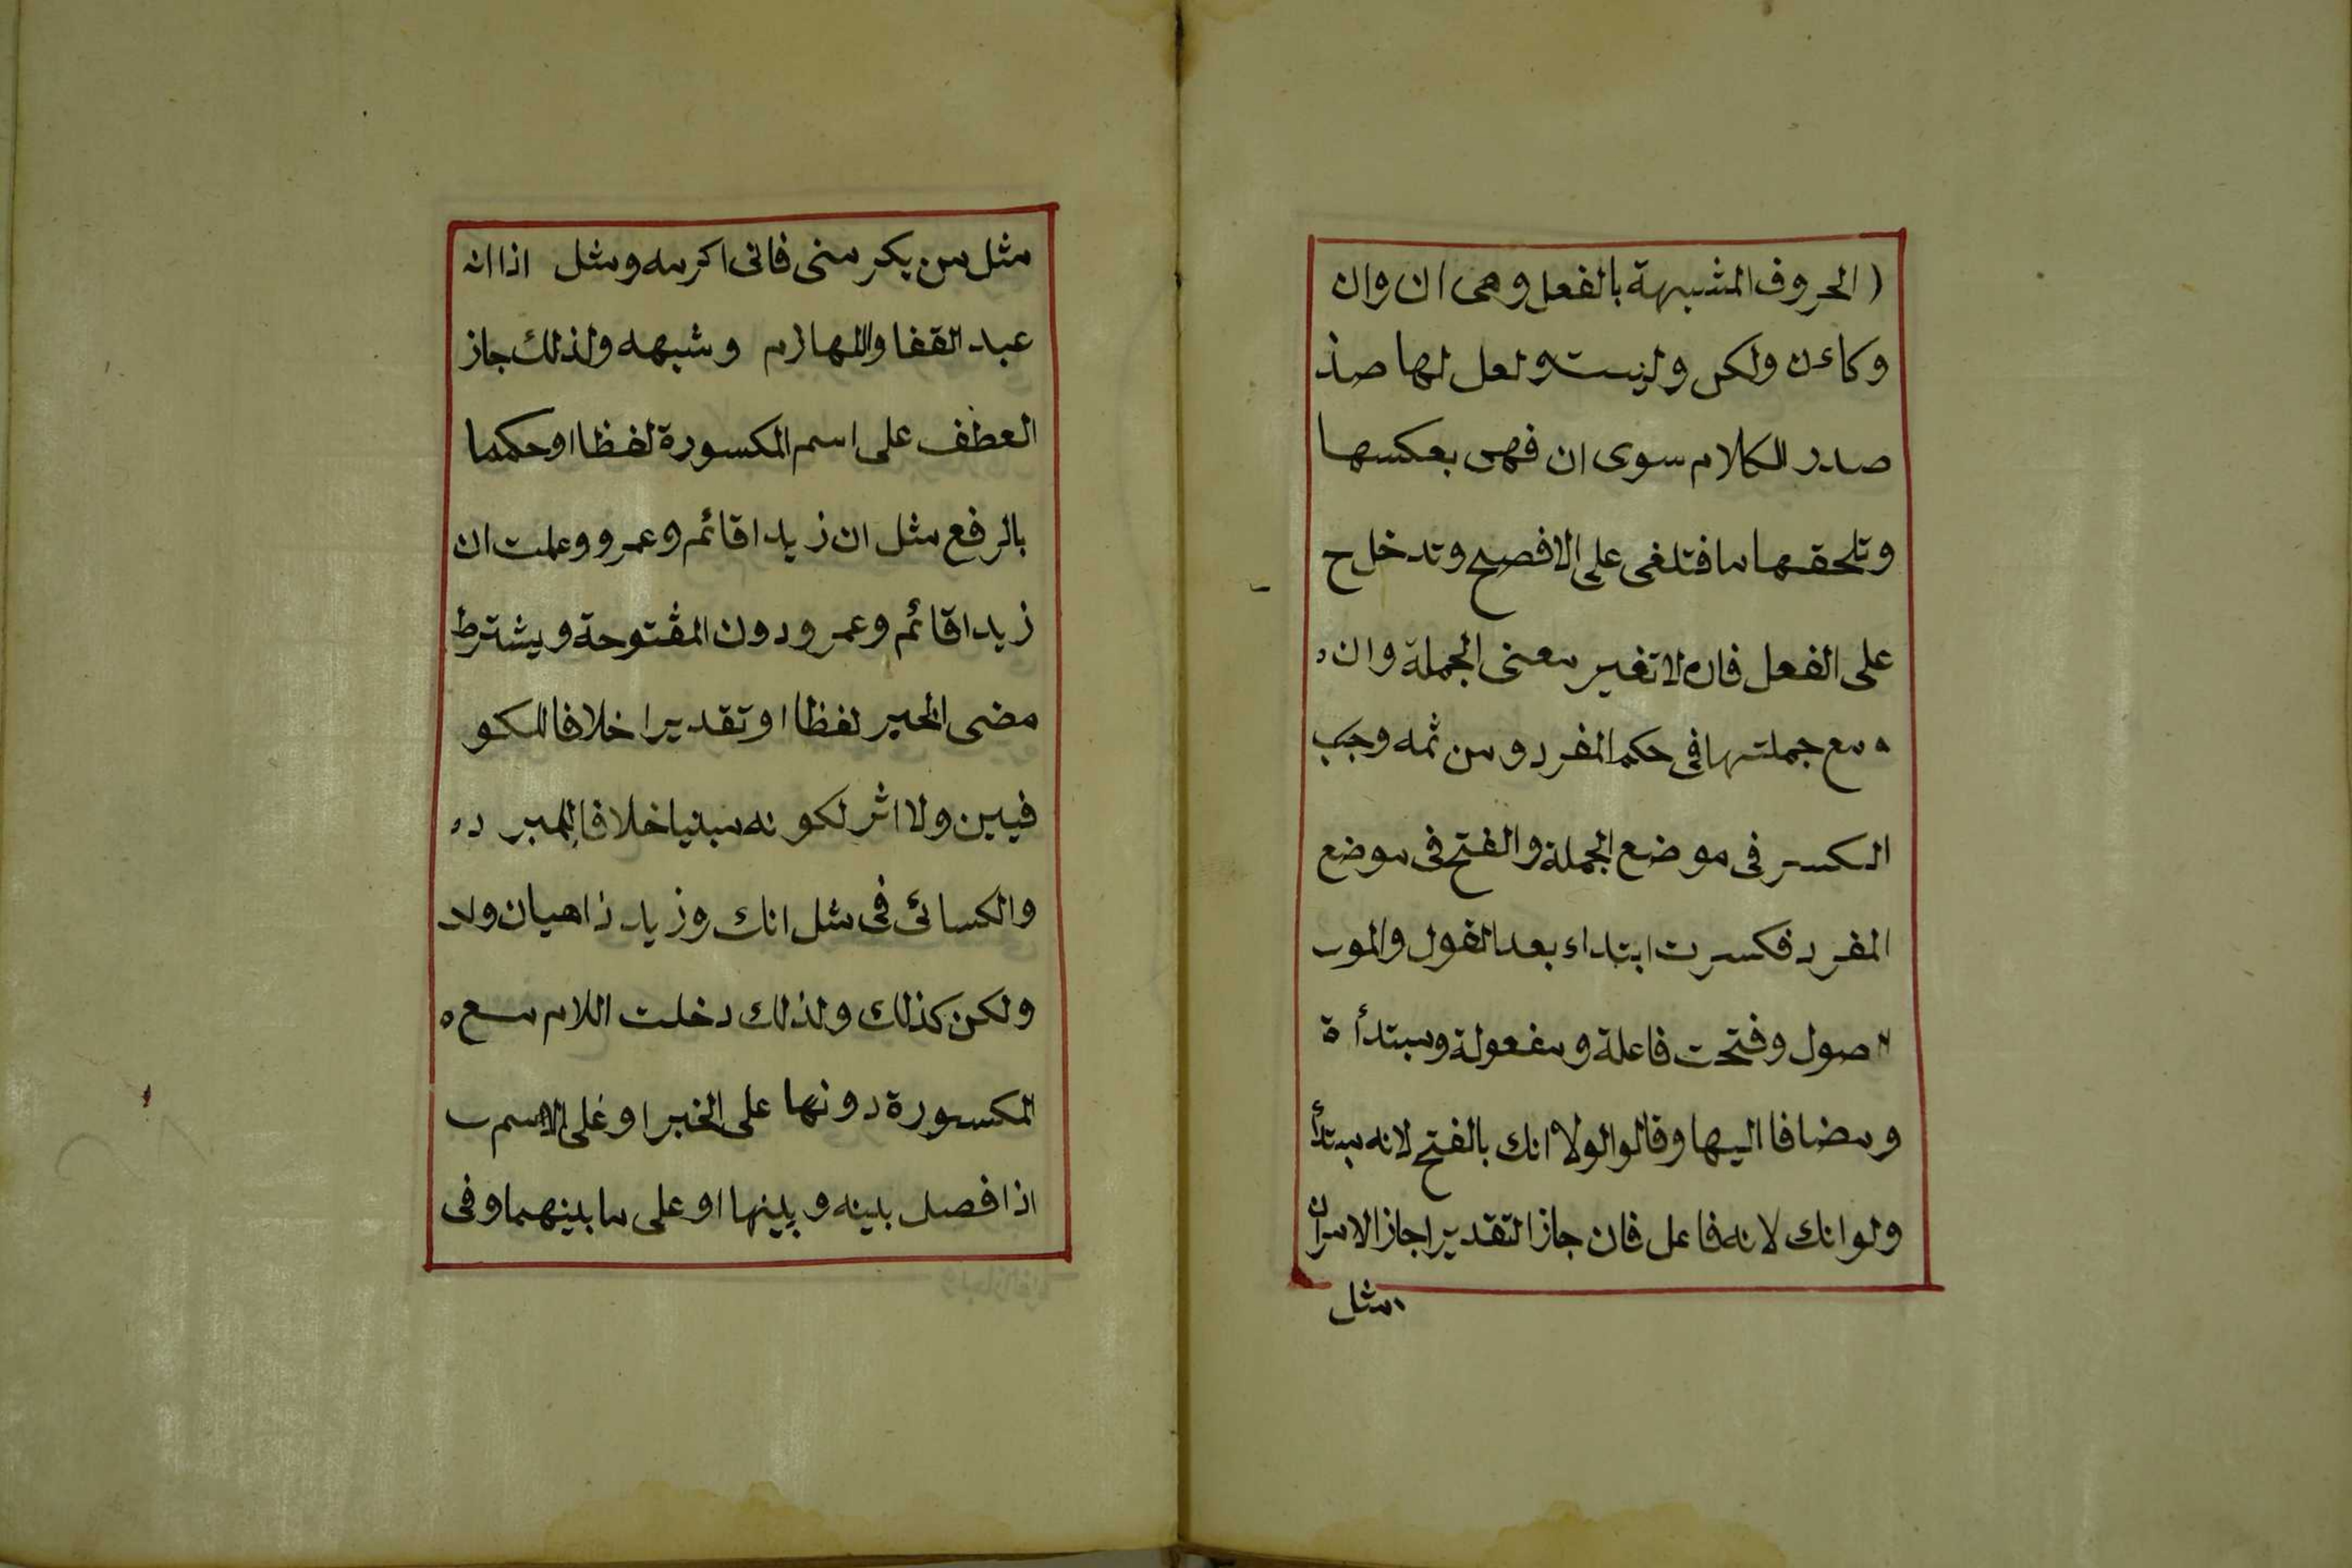 ( الحروف المشبهة بالفعل وهى ان وان
وكاءن ولكن وليت ولعل لها صد
صدر الكلام سوى ان فهى بعكسها
وتلحقها ما فتلغى على الافصح وتدخل ح
على الفعل فان لا تغير معنى الجملة وان
مع جملتها فى حكم المفرد ومن ثمه وجب
الكسر فى موضع الجملة والفتح فى موضع
المفرد فكسرت ابتداء بعد القول والمو
صول وفتحت فاعلة ومفعولة ومبتدأة
ومضافا اليها وقالوا لولا انك بالفتح لانه مبتدأ
ولو انك لانه فاعل فان جاز التقديرا جاز الامران
مثل
مثل من يكرمنى فانى اكرمه ومثل اذا انه
عبد القفا واللهازم وشبهه ولذلك جاز
العطف على اسم المكسورة لفظا او حكما
بالرفع مثل ان زيدا قائم وعمرو وعلمت ان
زيدا قائم وعمرو دون المفتوحة ويشترط
مضى الخبر لفظا او تقديرا خلافا للكو
فيين ولا اثر لكونه مبنيا خلافا للمبرد
والكسائى فى مثل انك وزيد ذاهبان ولا
ولكن كذلك ولذلك دخلت اللام مع
المكسورة دونها على الخبر او على الاسم
اذا فصل بينه وبينها او على ما بينهما وفى